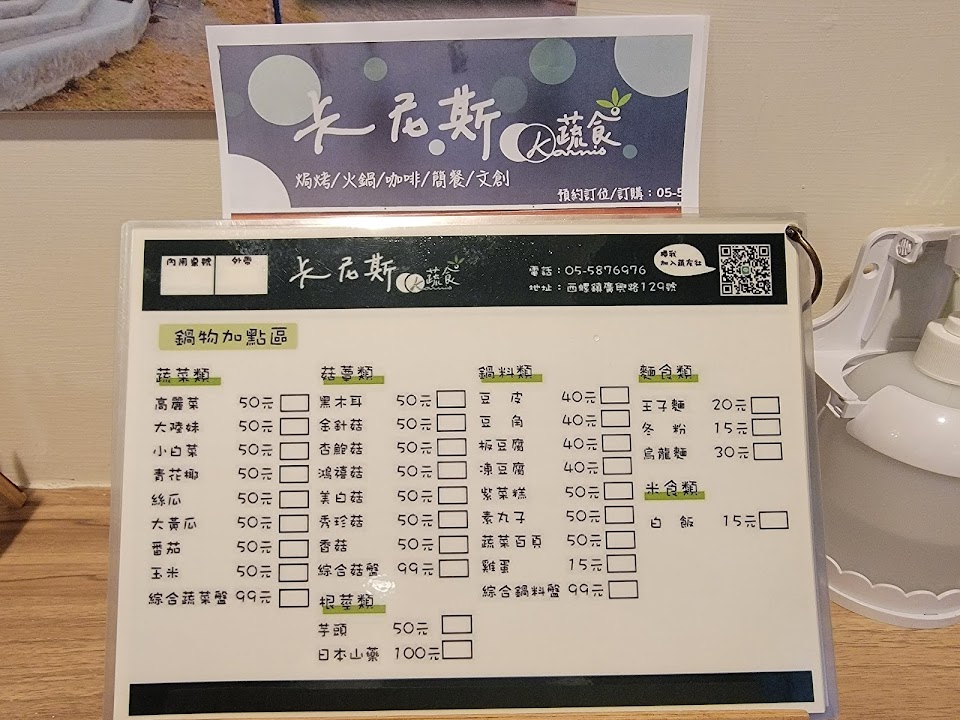 卡尼斯
蔬食
Kannis
焗烤/火鍋/咖啡/簡餐/文創
預約訂位/訂購：05-5
內用桌號 外帶
卡尼斯
蔬食
Kannis
電話：05-5876976
地址：西螺鎮廣興路129號
掃我
加入蔬友社
鍋物加點區
蔬菜類
高麗菜 50元
大陸妹 50元
小白菜 50元
青花椰 50元
絲瓜 50元
大黃瓜 50元
番茄 50元
玉米 50元
綜合蔬菜盤 99元
菇蕈類
黑木耳 50元
金針菇 50元
杏鮑菇 50元
鴻禧菇 50元
美白菇 50元
秀珍菇 50元
香菇 50元
綜合菇盤 99元
根莖類
芋頭 50元
日本山藥 100元
鍋料類
豆皮 40元
豆角 40元
板豆腐 40元
凍豆腐 40元
紫菜糕 50元
素丸子 50元
蔬菜百頁 50元
雞蛋 15元
綜合鍋料盤 99元
麵食類
王子麵 20元
冬粉 15元
烏龍麵 30元
米食類
白飯 15元